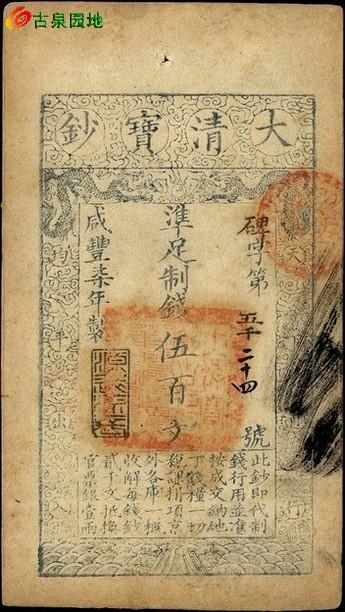 古泉园地
大清寶鈔
碑字第五千二十四號
準足制錢伍百文
咸豐柒年製
均平出入
此鈔即代制
錢行用並准
按成交納地
丁錢糧一切
稅課捐項京
外各庫一概
收解每錢鈔
貳千文抵換
官票銀壹兩